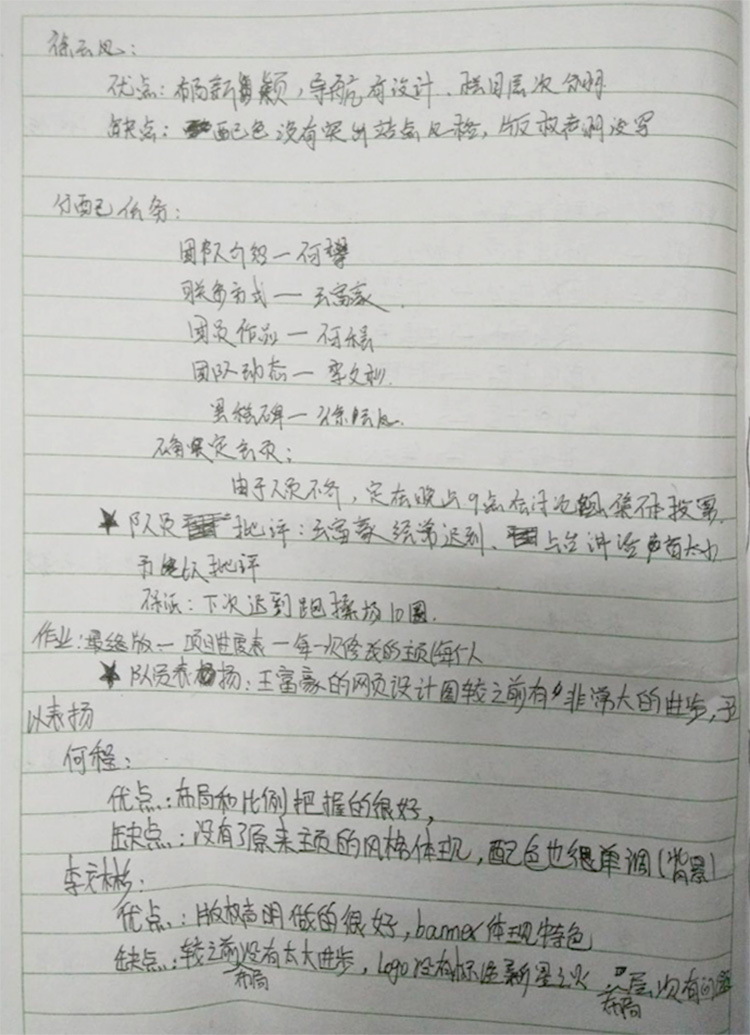 徐云风:
优点:布局新颖,导航有设计、栏目层次分明
缺点:配色没有突出站点风格,版权声明没写
分配任务:
团队介绍—何攀
联系方式—王富豪.
团员作品—何程
团队动态—李文彬.
里程碑—徐云风.
确定主页:
由于人员不齐,定在晚上9点在讨论组集体投票.
★队员批评:王富豪经常迟到、上台讲话声音太小
予以批评
保证:下次迟到跑操场10圈.
作业:最终版—项目进度表—每一次修改的主页(每个人
★队员表扬:王富豪的网页设计图较之前有非常大的进步,予
以表扬
何程:
优点:布局和比例把握的很好,
缺点:没有了原来主页的风格体现,配色也很单调(背景)
李文彬:
优点:版权声明做的很好,banner体现特色
缺点:较之前没有太大进步,logo没有标注新星之火 层次有问题
布局 布局